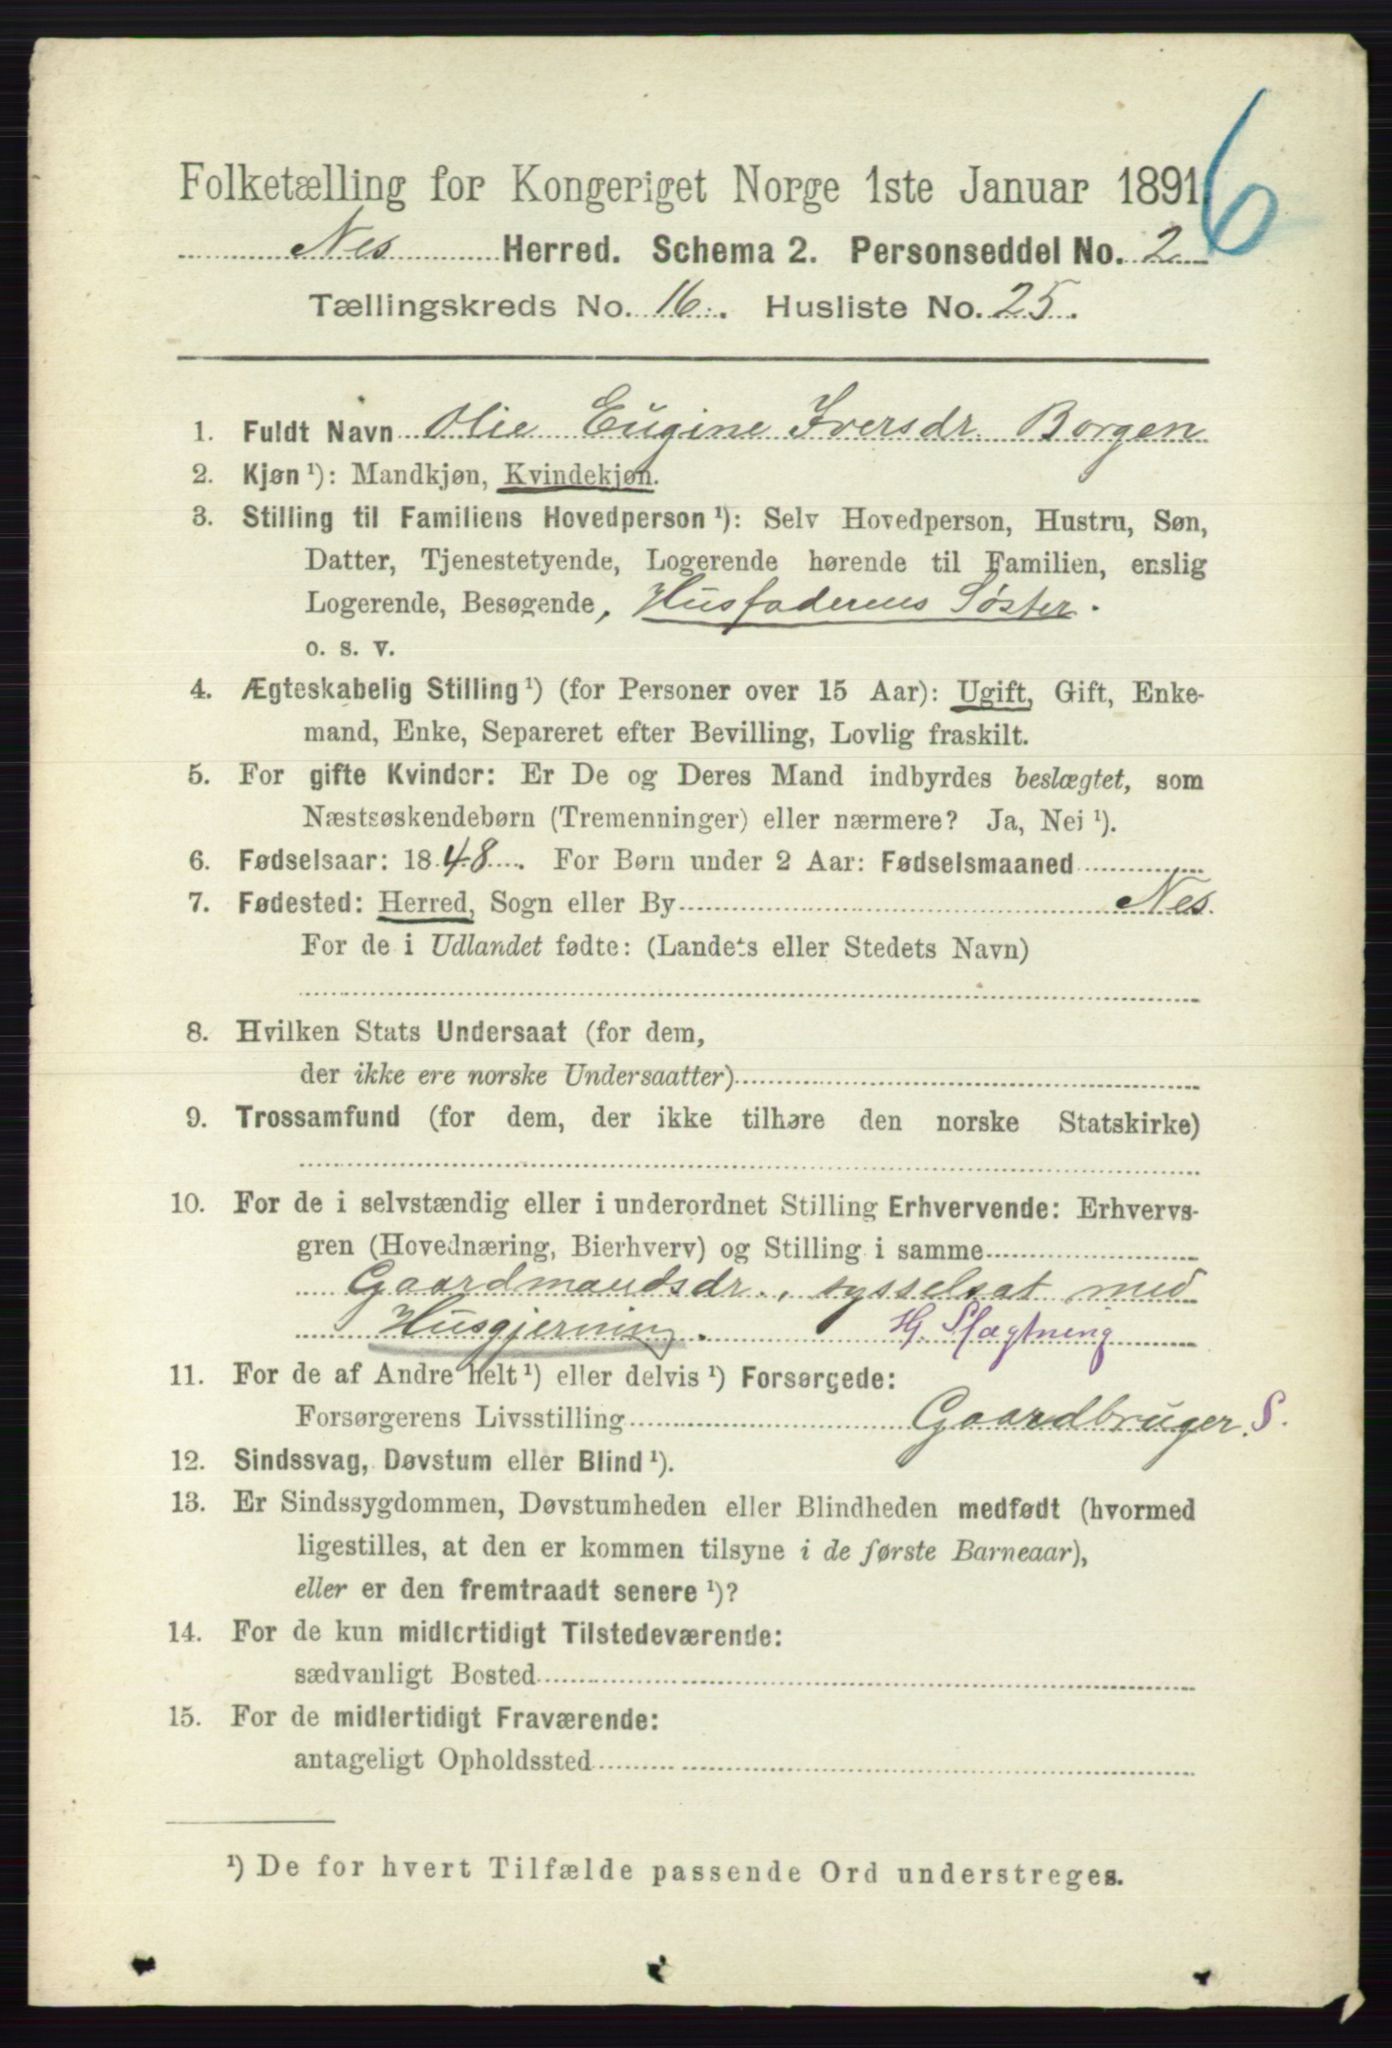 6
Folketælling for Kongeriget Norge 1ste Januar 1891.
Nes Herred. Schema 2. Personseddel No. 2
Tællingskreds No. 16. Husliste No. 25.
1. Fuldt Navn Olie Eugine Iversdr. Borgen
2. Kjøn ¹): Mandkjøn, Kvindekjøn.
3. Stilling til Familiens Hovedperson ¹): Selv Hovedperson, Hustru, Søn,
Datter, Tjenestetyende, Logerende hørende til Familien, enslig
Logerende, Besøgende, Husfaderens Søster.
o. s. v.
4. Ægteskabelig Stilling ¹) (for Personer over 15 Aar): Ugift, Gift, Enke-
mand, Enke, Separeret efter Bevilling, Lovlig fraskilt.
5. For gifte Kvinder: Er De og Deres Mand indbyrdes beslægtet, som
Næstsøskendebørn (Tremenninger) eller nærmere? Ja, Nei ¹).
6. Fødselsaar: 1848. For Børn under 2 Aar: Fødselsmaaned
7. Fødested: Herred, Sogn eller By Nes.
For de i Udlandet fødte: (Landets eller Stedets Navn)
8. Hvilken Stats Undersaat (for dem,
der ikke ere norske Undersaatter)
9. Trossamfund (for dem, der ikke tilhøre den norske Statskirke)
10. For de i selvstændig eller i underordnet Stilling Erhvervende: Erhvervs-
gren (Hovednæring, Bierhverv) og Stilling i samme
Gaardmandsdr., sysselsat med
Husgjerning. H. Slægtning
11. For de af Andre helt ¹) eller delvis ¹) Forsørgede:
Forsørgerens Livsstilling Gaardbruger. S.
12. Sindssvag, Døvstum eller Blind ¹).
13. Er Sindssygdommen, Døvstumheden eller Blindheden medfødt (hvormed
ligestilles, at den er kommen tilsyne i de første Barneaar),
eller er den fremtraadt senere ¹)?
14. For de kun midlertidigt Tilstedeværende:
sædvanligt Bosted
15. For de midlertidigt Fraværende:
antageligt Opholdssted
¹) De for hvert Tilfælde passende Ord understreges.